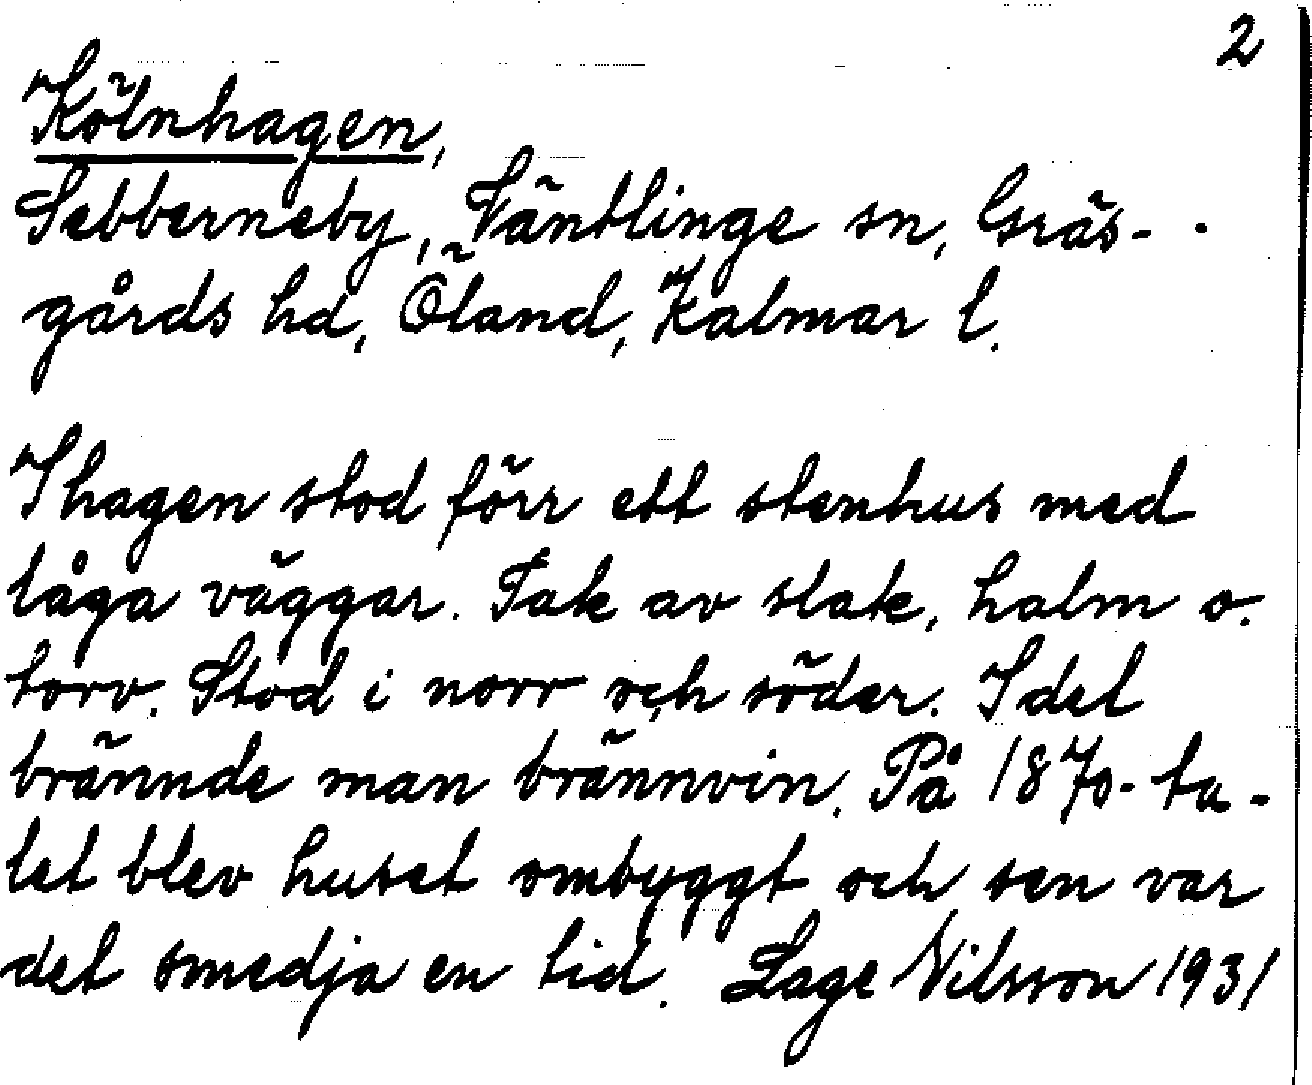 2
Kölnhagen,
Sebberneby, Väntlinge sn, Gräs-
gårds hd, Öland, Kalmar l.
I hagen stod förr ett stenhus med
låga väggar. Tak av slak, halm o.
torv. Stod i norr och söder. I det
brännde man brännvin. På 1870-ta-
let blev huset ombyggt och sen var
det smedja en tid. Lage Nilsson 1931